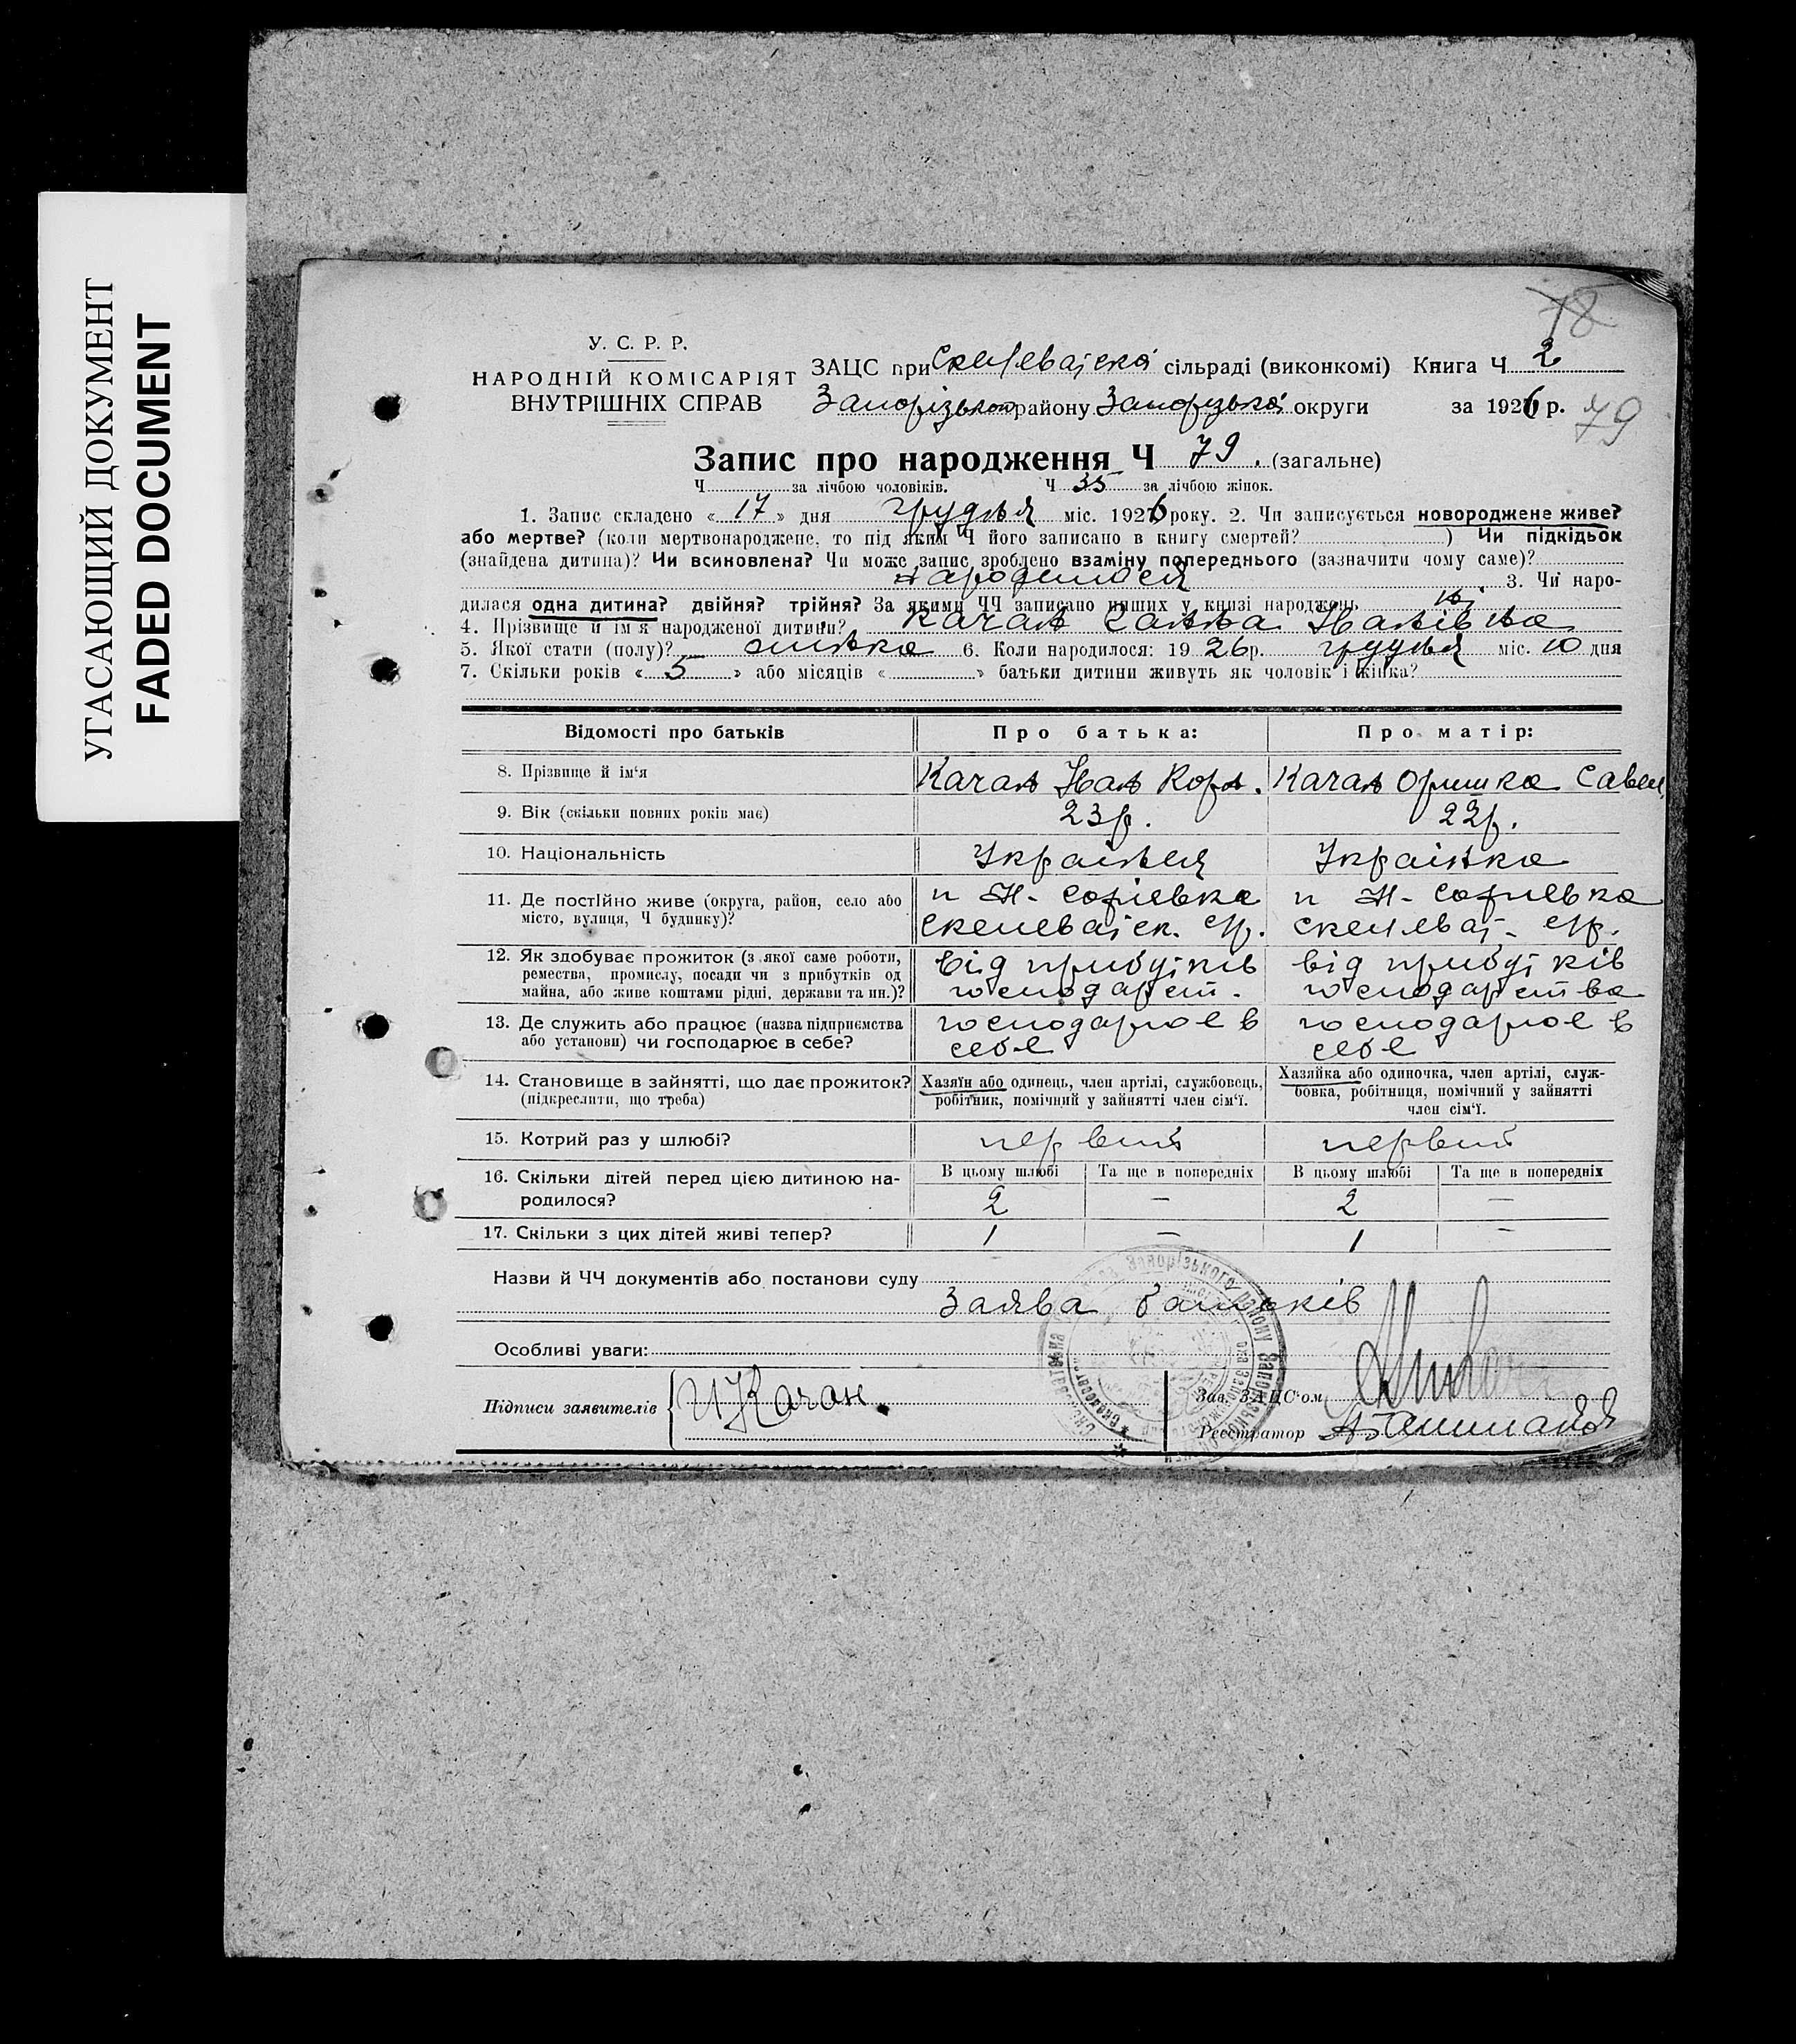 УГАСАЮЩИЙ ДОКУМЕНТ
FADED DOCUMENT
78
У. С. Р. Р.
НАРОДНІЙ КОМІСАРІЯТ
ВНУТРІШНІХ СПРАВ
ЗАЦС при сільраді (виконкомі) Книга Ч 2
району округи за 1926 р. 79
Запис про народження Ч 79. (загальне)
Ч за лічбою чоловіків. Ч 35 за лічбою жінок.
1. Запис складено « 17 » дня грудня міс. 1926 року. 2. Чи записується новороджене живе?
або мертве? (коли мертвонароджене, то під яким Ч його записано в книгу смертей? ) Чи підкідьок
(знайдена дитина)? Чи всиновлена? Чи може запис зроблено взаміну попереднього (зазначити чому саме)?
народилося 3. Чи наро-
дилася одна дитина? двійня? трійня? За якими ЧЧ записано инших у книзі народжень
4. Прізвище й ім'я народженої дитини? Качан Ганна Іванівна
5. Якої стати (полу)? жінка 6. Коли народилося: 1926 р. грудня міс. 10 дня
7. Скільки років « 5 » або місяців « » батьки дитини живуть як чоловік і жінка?
Відомості про батьків Про батька: Про матір:
8. Прізвище й ім'я Качан Іван Корн. Качан Оришка Савел.
9. Вік (скільки повних років має) 23 р. 22 р.
10. Національність Українец Українка
11. Де постійно живе (округа, район, село або
місто, вулиця, Ч будинку)?
п Н-Софіевка
Скелеват ск. с/р.
п Н-Софиевка
Скелеват- с/р.
12. Як здобуває прожиток (з якої саме роботи,
ремества, промислу, посади чи з прибутків од
майна, або живе коштами рідні, держави та ин.)?
від прибутків
господарст.
від прибутків
господарства
13. Де служить або працює (назва підприємства
або установи) чи господарює в себе?
господарює в
себе
господарює в
себе
14. Становище в зайнятті, що дає прожиток?
(підкреслити, що треба)
Хазяїн або одинець, член артілі, службовець,
робітник, помічний у зайнятті член сім'ї.
Хазяйка або одиночка, член артілі, служ-
бовка, робітниця, помічний у зайнятті
член сім'ї.
15. Котрий раз у шлюбі? первий первий
16. Скільки дітей перед цією дитиною на-
родилося?
В цьому шлюбі Та ще в попередніх В цьому шлюбі Та ще в попередніх
2 — 2 —
17. Скільки з цих дітей живі тепер? 1 — 1 —
Назви й ЧЧ документів або постанови суду
Заява батьків
Особливі уваги:
Підписи заявителів И Качан.
Зав. ЗАЦС'ом
Реєстратор